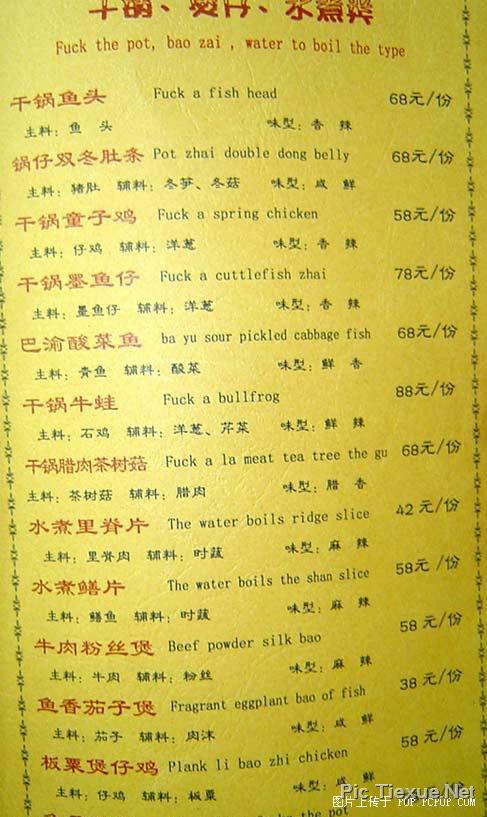 干锅、煲仔、水煮类
Fuck the pot, bao zai , water to boil the type
干锅鱼头 Fuck a fish head 68元/份
主料：鱼 头 味型：香 辣
锅仔双冬肚条 Pot zhai double dong belly 68元/份
主料：猪肚 辅料：冬笋、冬菇 味型：咸 鲜
干锅童子鸡 Fuck a spring chicken 58元/份
主料：仔鸡 辅料：洋葱 味型：香 辣
干锅墨鱼仔 Fuck a cuttlefish zhai 78元/份
主料：墨鱼仔 辅料：洋葱 味型：香 辣
巴渝酸菜鱼 ba yu sour pickled cabbage fish 68元/份
主料：青鱼 辅料：酸菜 味型：鲜 香
干锅牛蛙 Fuck a bullfrog 88元/份
主料：石鸡 辅料：洋葱、芹菜 味型：鲜 辣
干锅腊肉茶树菇 Fuck a la meat tea tree the gu 68元/份
主料：茶树菇 辅料：腊肉 味型：腊 香
水煮里脊片 The water boils ridge slice 42元/份
主料：里脊肉 辅料：时蔬 味型：麻 辣
水煮鳝片 The water boils the shan slice 58元/份
主料：鳝鱼 辅料：时蔬 味型：麻 辣
牛肉粉丝煲 Beef powder silk bao 58元/份
主料：牛肉 辅料：粉丝 味型：麻 辣
鱼香茄子煲 Fragrant eggplant bao of fish 38元/份
主料：茄子 辅料：肉沫 味型：咸 鲜
板栗煲仔鸡 Plank li bao zhi chicken 58元/份
主料：仔鸡 辅料：板栗 味型：咸 鲜
the pot
Pic.Tiexue.Net
图片上传于 POP.PCPOP.COM